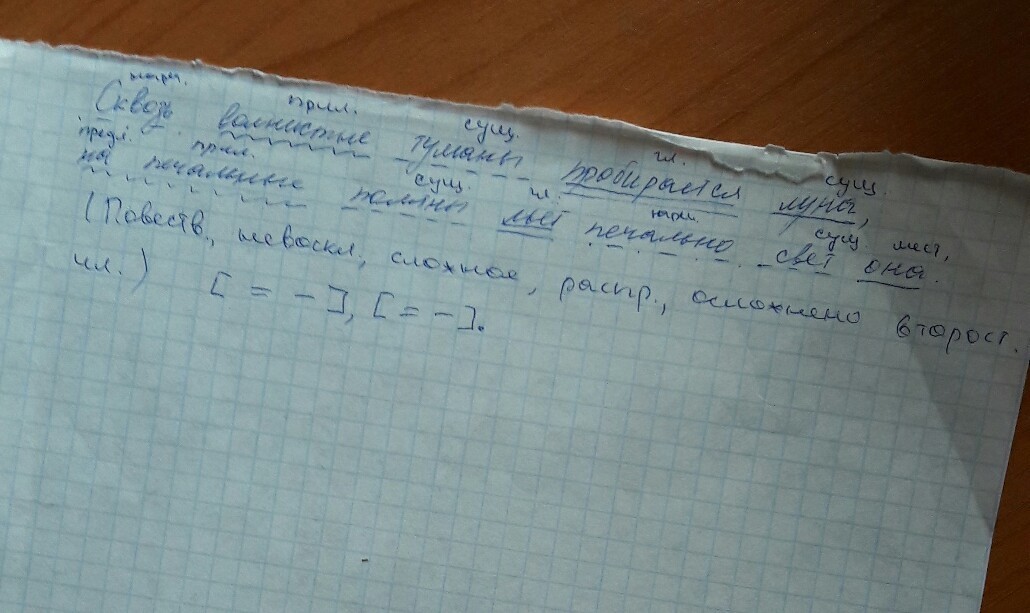 нареч. прил. сущ. гл. сущ.
Сквозь волнистые туманы пробирается луна,
предл. прил. сущ. гл. нареч. сущ. мест.
на печальные поляны льет печально свет она.
(Повеств., невоскл., сложное, распр., осложнено второст.
чл.) [ = - ], [ = - ].